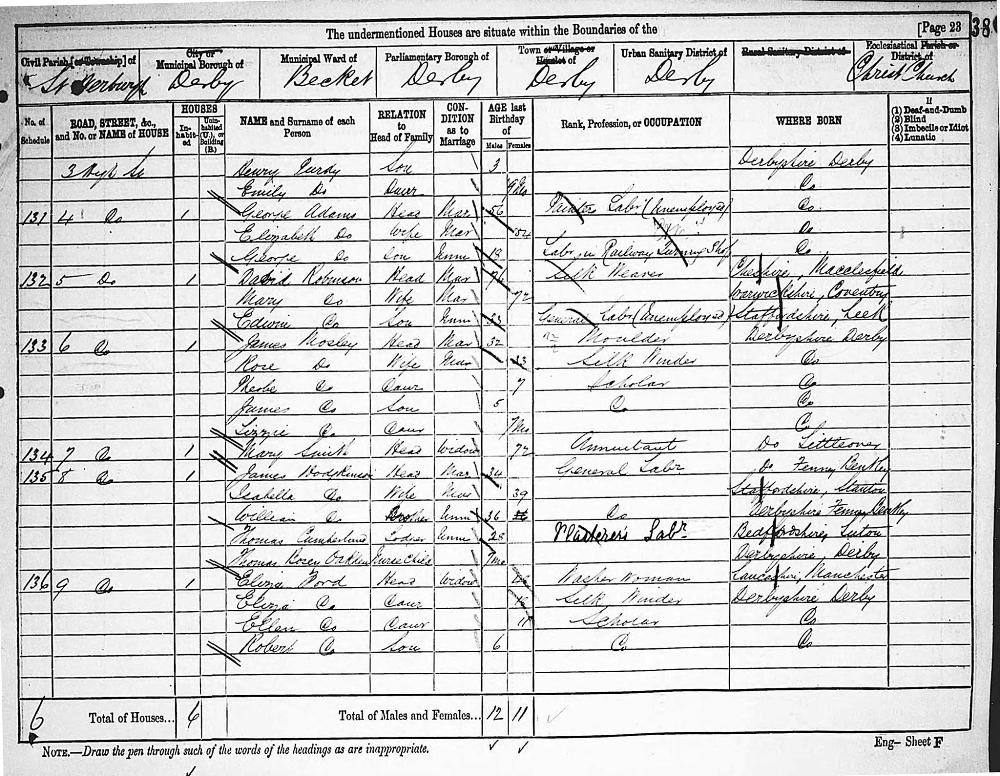 The undermentioned Houses are situate within the Boundaries of the [Page 23 38
Civil Parish [or Township] of City or Municipal Borough of Municipal Ward of Parliamentary Borough of Town or Village or Hamlet of Urban Sanitary District of Rural Sanitary District of Ecclesiastical Parish or District of
St Werburgh Derby Becket Derby Derby Derby Christ Church
No. of Schedule ROAD, STREET, &c., and No. or NAME of HOUSE HOUSES Inhabited Uninhabited (U.), or Building (B.) NAME and Surname of each Person RELATION to Head of Family CONDITION as to Marriage AGE last Birthday of Males Females Rank, Profession, or OCCUPATION WHERE BORN If (1) Deaf-and-Dumb (2) Blind (3) Imbecile or Idiot (4) Lunatic
3 St Henry Purdy Son 3 Derbyshire Derby
Emily Do Daur 9 Mo Do
131 4 Do 1 George Adams Head Mar 56 Painters Labr (Unemployed) Do
Elizabeth Do Wife Mar 54 Do
George Do Son Unm 18 Labr in Railway Turning Shop Do
132 5 Do 1 David Robinson Head Mar 76 Silk Weaver Cheshire, Macclesfield
Mary Do Wife Mar 72 Warwickshire, Coventry
Edwin Do Son Unm 33 General Labr (Unemployed) Staffordshire, Leek
133 6 Do 1 James Mosley Head Mar 32 Moulder Derbyshire Derby
Rose Do Wife Mar 33 Silk Winder Do
Phebe Do Daur 7 Scholar Do
James Do Son 5 Do Do
Lizzie Do Daur 7 Mo Do
134 7 Do 1 Mary Smith Head Widow 72 Annuitant Do Littleover
135 8 Do 1 James Hodgkinson Head Mar 34 General Labr Do Fenny Bentley
Isabella Do Wife Mar 39 Staffordshire, Stanton
William Do Brother Unm 36 Do Derbyshire Fenny Bentley
Thomas Cumberland Lodger Unm 28 Plasterers Labr Bedfordshire, Luton
Thomas Rosen Oakden Nurse Child 7 Mo Derbyshire, Derby
136 9 Do 1 Eliza Ford Head Widow Washer Woman Lancashire, Manchester
Eliza Do Daur 16 Silk Winder Derbyshire Derby
Ellen Do Daur 11 Scholar Do
Robert Do Son 6 Do Do
6 Total of Houses... 6 Total of Males and Females... 12 11
NOTE.—Draw the pen through such of the words of the headings as are inappropriate. Eng— Sheet F